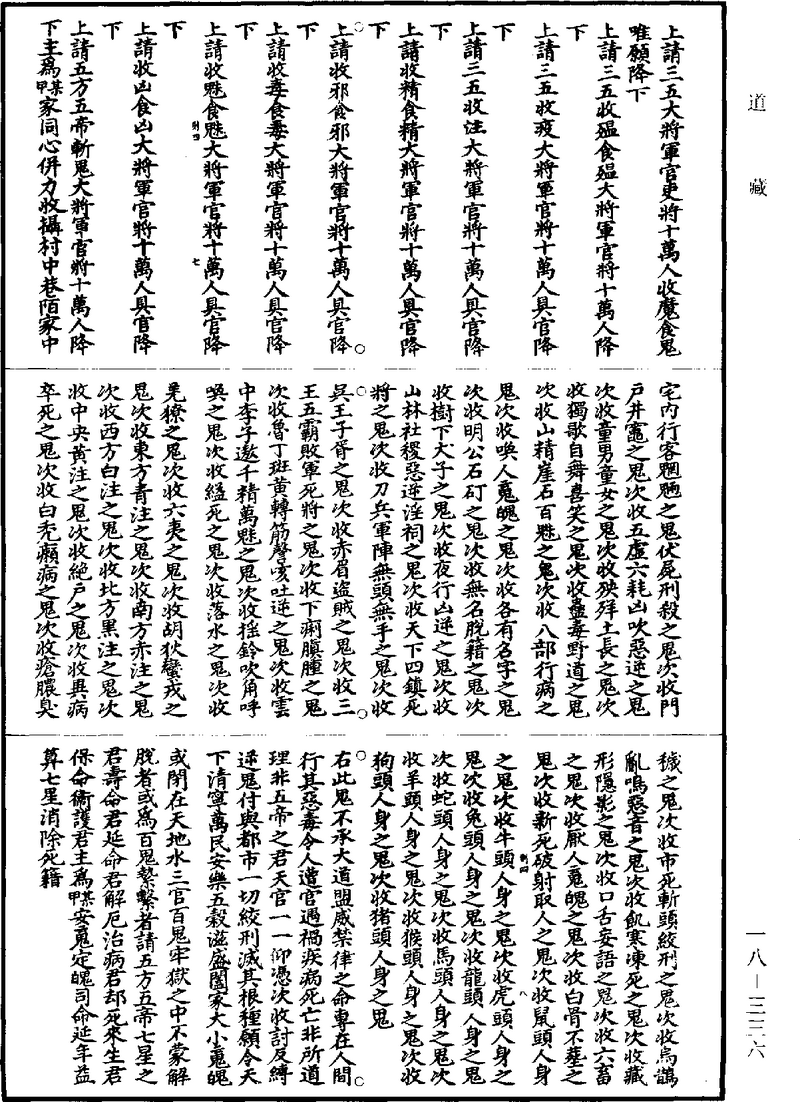 道藏
上請三五大將軍官吏將十萬人收魔食鬼
唯願降下
上請三五收瘟食瘟大將軍官將十萬人降
下
上請三五收疫大將軍官將十萬人具官降
下
上請三五收注大將軍官將十萬人具官降
下
上請收精食精大將軍官將十萬人具官降
下
上請收邪食邪大將軍官將十萬人具官降
下
上請收毒食毒大將軍官將十萬人具官降
下
上請收魅食魅大將軍官將十萬人具官降
下
上請收凶食凶大將軍官將十萬人具官降
下
上請五方五帝斬鬼大將軍官將十萬人降
下主為某甲家同心併力收攝村中巷陌家中
宅內行客魍魎之鬼伏屍刑殺之鬼次收門
戶井竈之鬼次收五虛六耗凶吹惡逆之鬼
次收童男童女之鬼次收殃殍土長之鬼次
收獨歌自舞喜笑之鬼次收蠱毒野道之鬼
次收山精崖石百魅之鬼次收八部行病之
鬼次收喚人䰟魄之鬼次收各有名字之鬼
次收明公石矴之鬼次收無名脫籍之鬼次
收樹下犬子之鬼次收夜行凶逆之鬼次收
山林社稷惡逆淫祠之鬼次收天下四鎮死
將之鬼次收刀兵軍陣無頭無手之鬼次收
吳王子胥之鬼次收赤眉盜賊之鬼次收三
王五霸敗軍死將之鬼次收下痢䐜腫之鬼
次收魯丁班黃轉筋謦咳吐逆之鬼次收雲
中李子遨千精萬魅之鬼次收搖鈴吹角呼
喚之鬼次收縊死之鬼次收落水之鬼次收
羌獠之鬼次收六夷之鬼次收胡狄蠻戎之
鬼次收東方青注之鬼次收南方赤注之鬼
次收西方白注之鬼次收北方黑注之鬼次
收中央黃注之鬼次收絕戶之鬼次收與病
卒死之鬼次收白禿癩病之鬼次收瘡膿臭
穢之鬼次收市死斬頭絞刑之鬼次收烏鵲
亂鳴惡音之鬼次收飢寒凍死之鬼次收藏
形隱影之鬼次收口舌妄語之鬼次收六畜
之鬼次收厭人䰟魄之鬼次收白骨不塟之
鬼次收新死破射取人之鬼次收鼠頭人身
之鬼次收牛頭人身之鬼次收虎頭人身之
鬼次收兔頭人身之鬼次收龍頭人身之鬼
次收蛇頭人身之鬼次收馬頭人身之鬼次
收羊頭人身之鬼次收猴頭人身之鬼次收
狗頭人身之鬼次收猪頭人身之鬼
右此鬼不承大道盟威禁律之命專在人間
行其惡毒令人遭官遇禍疾病死亡非所道
理非五帝之君天官一一仰憑次收討反縛
逆鬼付與都市一切絞刑滅其根種願令天
下清寧萬民安樂五穀滋盛闔家大小䰟魄
或閉在天地水三官百鬼牢獄之中不蒙解
脫者或為百鬼縶繫者請五方五帝七星之
君壽命君延命君解厄治病君却死來生君
保命衞護君主為某甲安䰟定魄司命延年益
算七星消除死籍
一八—三三六